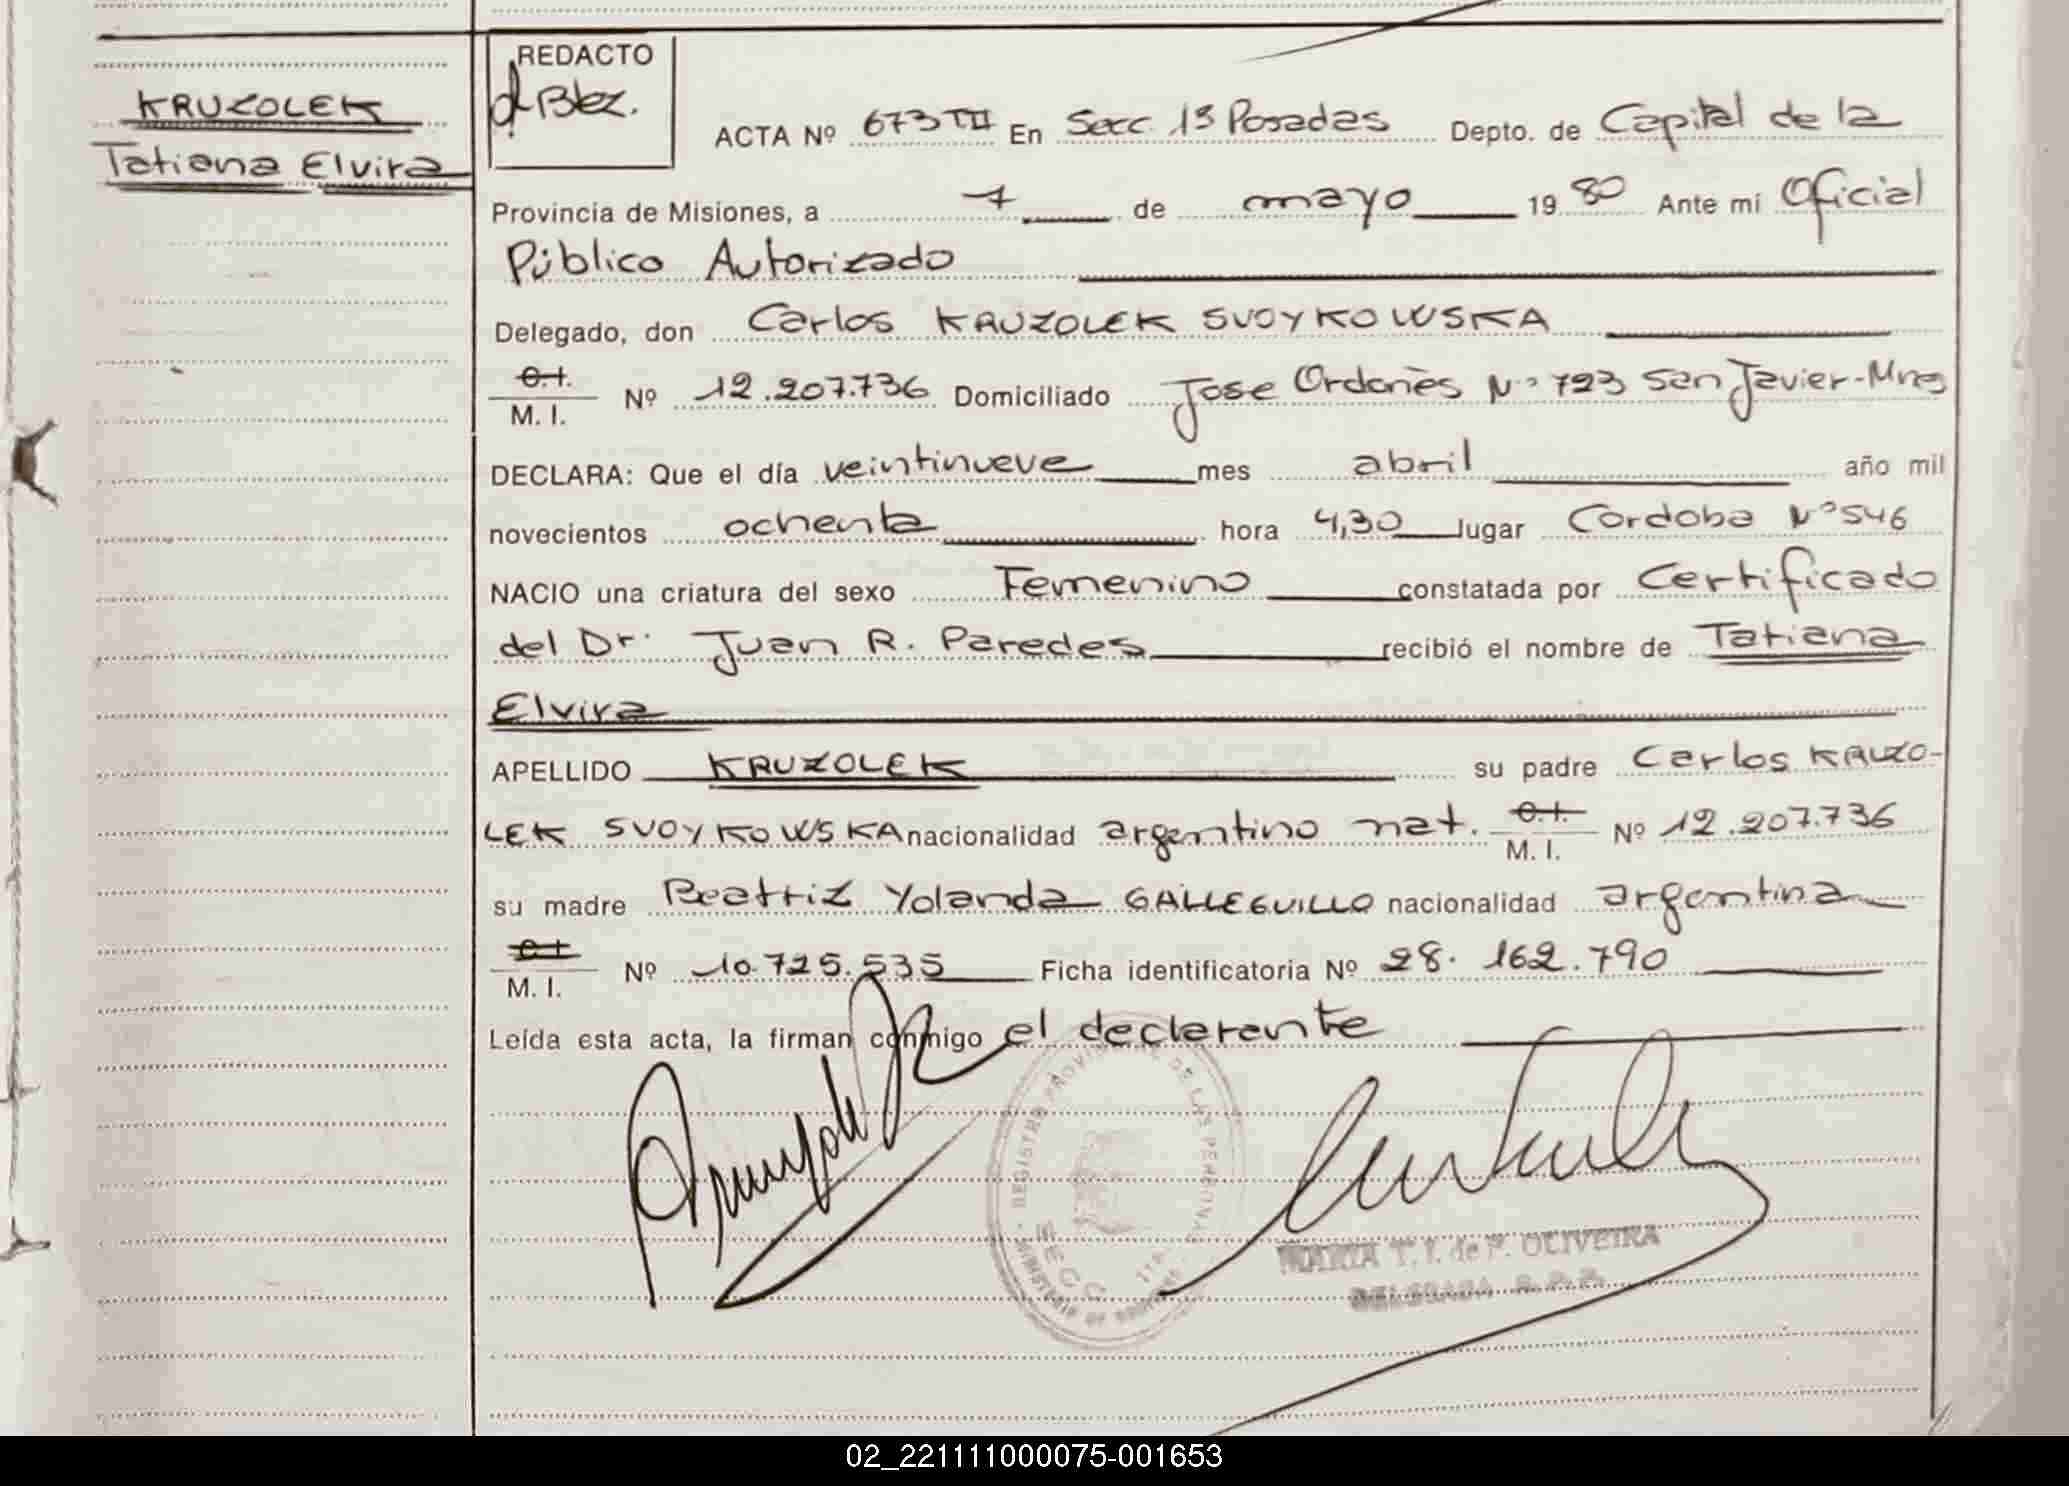 REDACTO
Blez.
KRUZOLEK
Tatiana Elvira
ACTA Nº 673 TII En Secc. 1ª Posadas Depto. de Capital de la
Provincia de Misiones, a 7 de mayo 1980 Ante mi Oficial
Público Autorizado
Delegado, don Carlos KRUZOLEK SVOYKOWSKA
C.I.
M. I. Nº 12.207.736 Domiciliado Jose Ordonès Nº 723 San Javier-Mnes
DECLARA: Que el día veintinueve mes abril año mil
novecientos ochenta hora 4,30 lugar Cordoba Nº 546
NACIO una criatura del sexo Femenino constatada por Certificado
del Dr. Juan R. Paredes recibió el nombre de Tatiana
Elvira
APELLIDO KRUZOLEK su padre Carlos KRUZO-
LEK SVOYKOWSKA nacionalidad argentino nat. C.I. M. I. Nº 12.207.736
su madre Beatriz Yolanda GALLEGUILLO nacionalidad argentina
C.I.
M. I. Nº 10.725.535 Ficha identificatoria Nº 28.162.790
Leída esta acta, la firman conmigo el declarante
REGISTRO PROVINCIAL DE LAS PERSONAS
SECC 1ra.
MINISTERIO DE GOBIERNO
MARIA T. I. de F. OLIVEIRA
DELEGADA R. P. P.
02_221111000075-001653